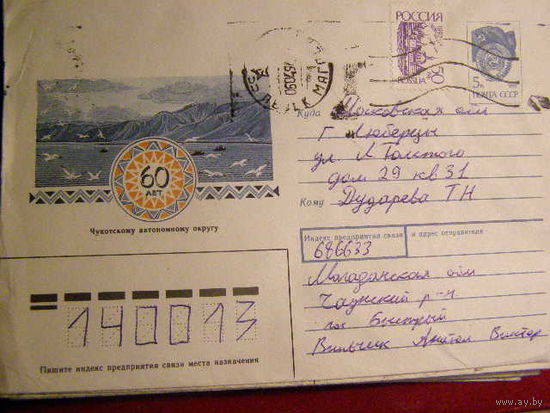 РОССИЯ
РОССИЯ 50
5к
ПОЧТА СССР
060494
МАГА
Куда Московская обл
г Люберцы
ул. Л Толстого
дом 29 кв 31
Кому Дударева ТН
60
ЛЕТ
Чукотскому автономному округу
Индекс предприятия связи и адрес отправителя
686633
Магаданская обл
р-н
пос Быстрый
140013
Пишите индекс предприятия связи места назначения
www.ay.by